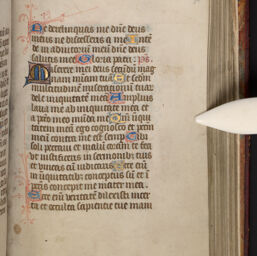 Ne derelinquas me dñe deus
meus ne discesseris a me Inte
de in adiutoriũ meũ dñe deus
salutis mee Gloria patri ps
Miserere mei deus secũdũ mag
nam miam tuã Et sedm
multitudinẽ miseracionũ tuar
dele iniquitatẽ meã Amplius
laua me ab iniquitate mea et
a pcõo meo mũda me Qm̃ iniqui
tatem meã ego cognosco et pctm̃
meũ contra me est semp Tibi
soli peccaui et malũ corã te feci
ut iustificeris in sermonibz tuis
et vincas cũ iudicaris Ecce eni
in iniquitatibz conceptus sũ et ĩ
pctis concepit me mater mea
Ecce eni veritatẽ dilexisti incer
ta et occulta sapientie tue mani